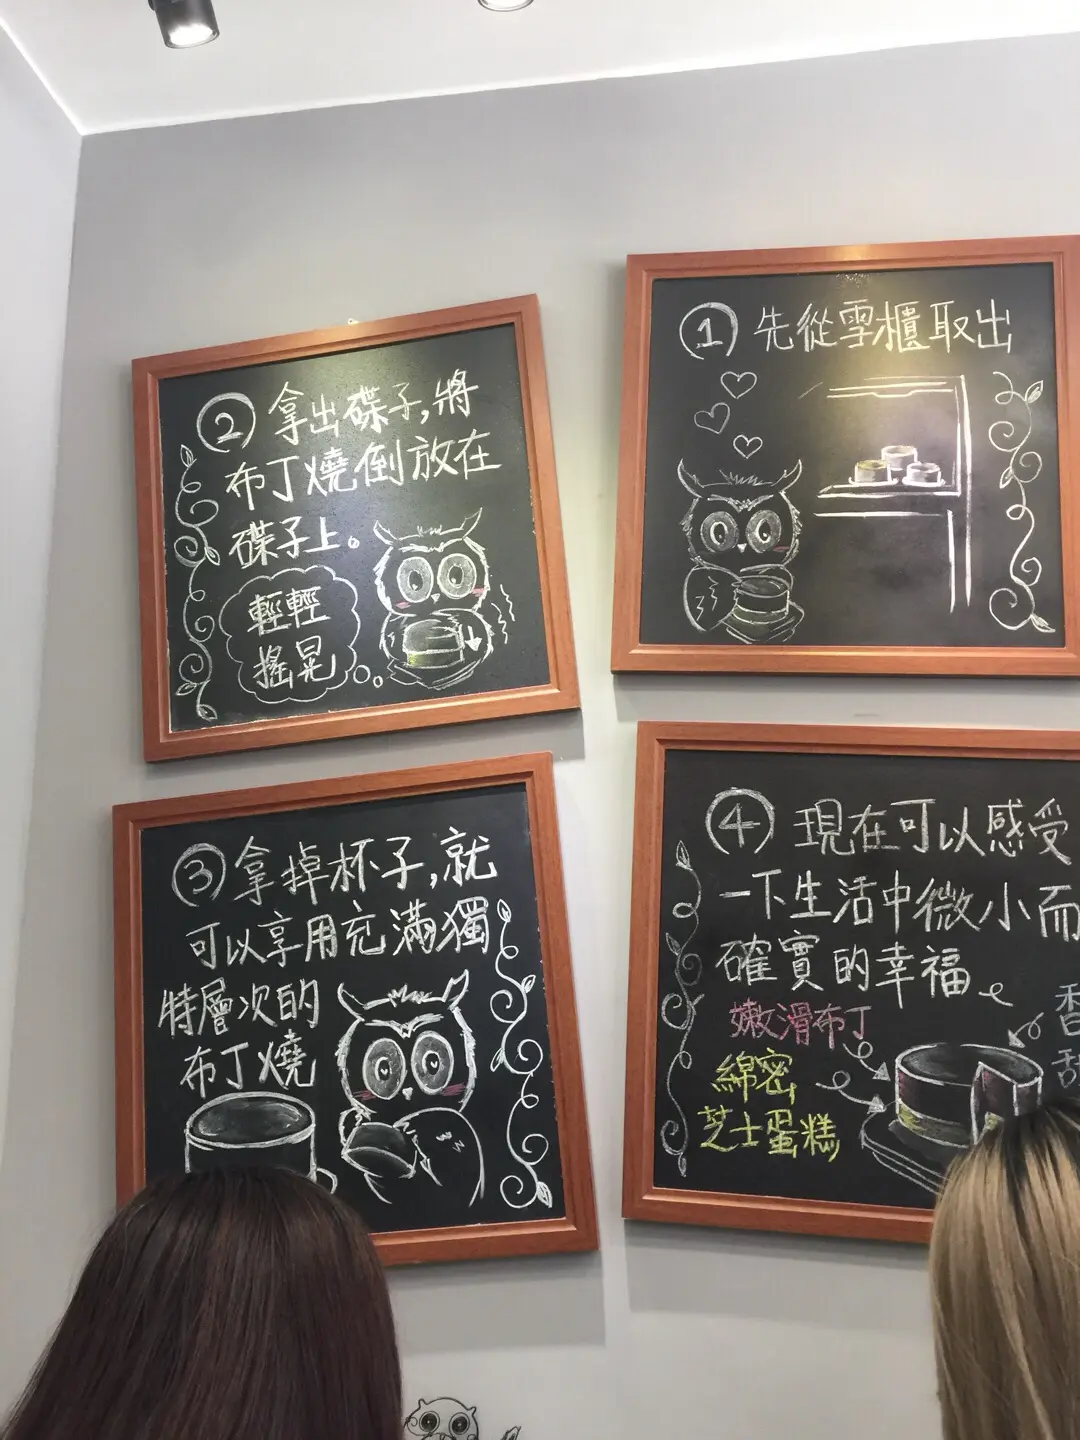 ① 先從雪櫃取出
② 拿出碟子,將
布丁燒倒放在
碟子上。
輕輕
搖晃
③ 拿掉杯子,就
可以享用充滿獨
特層次的
布丁燒
④ 現在可以感受
一下生活中微小而
確實的幸福
嫩滑布丁
綿密
芝士蛋糕
香
甜